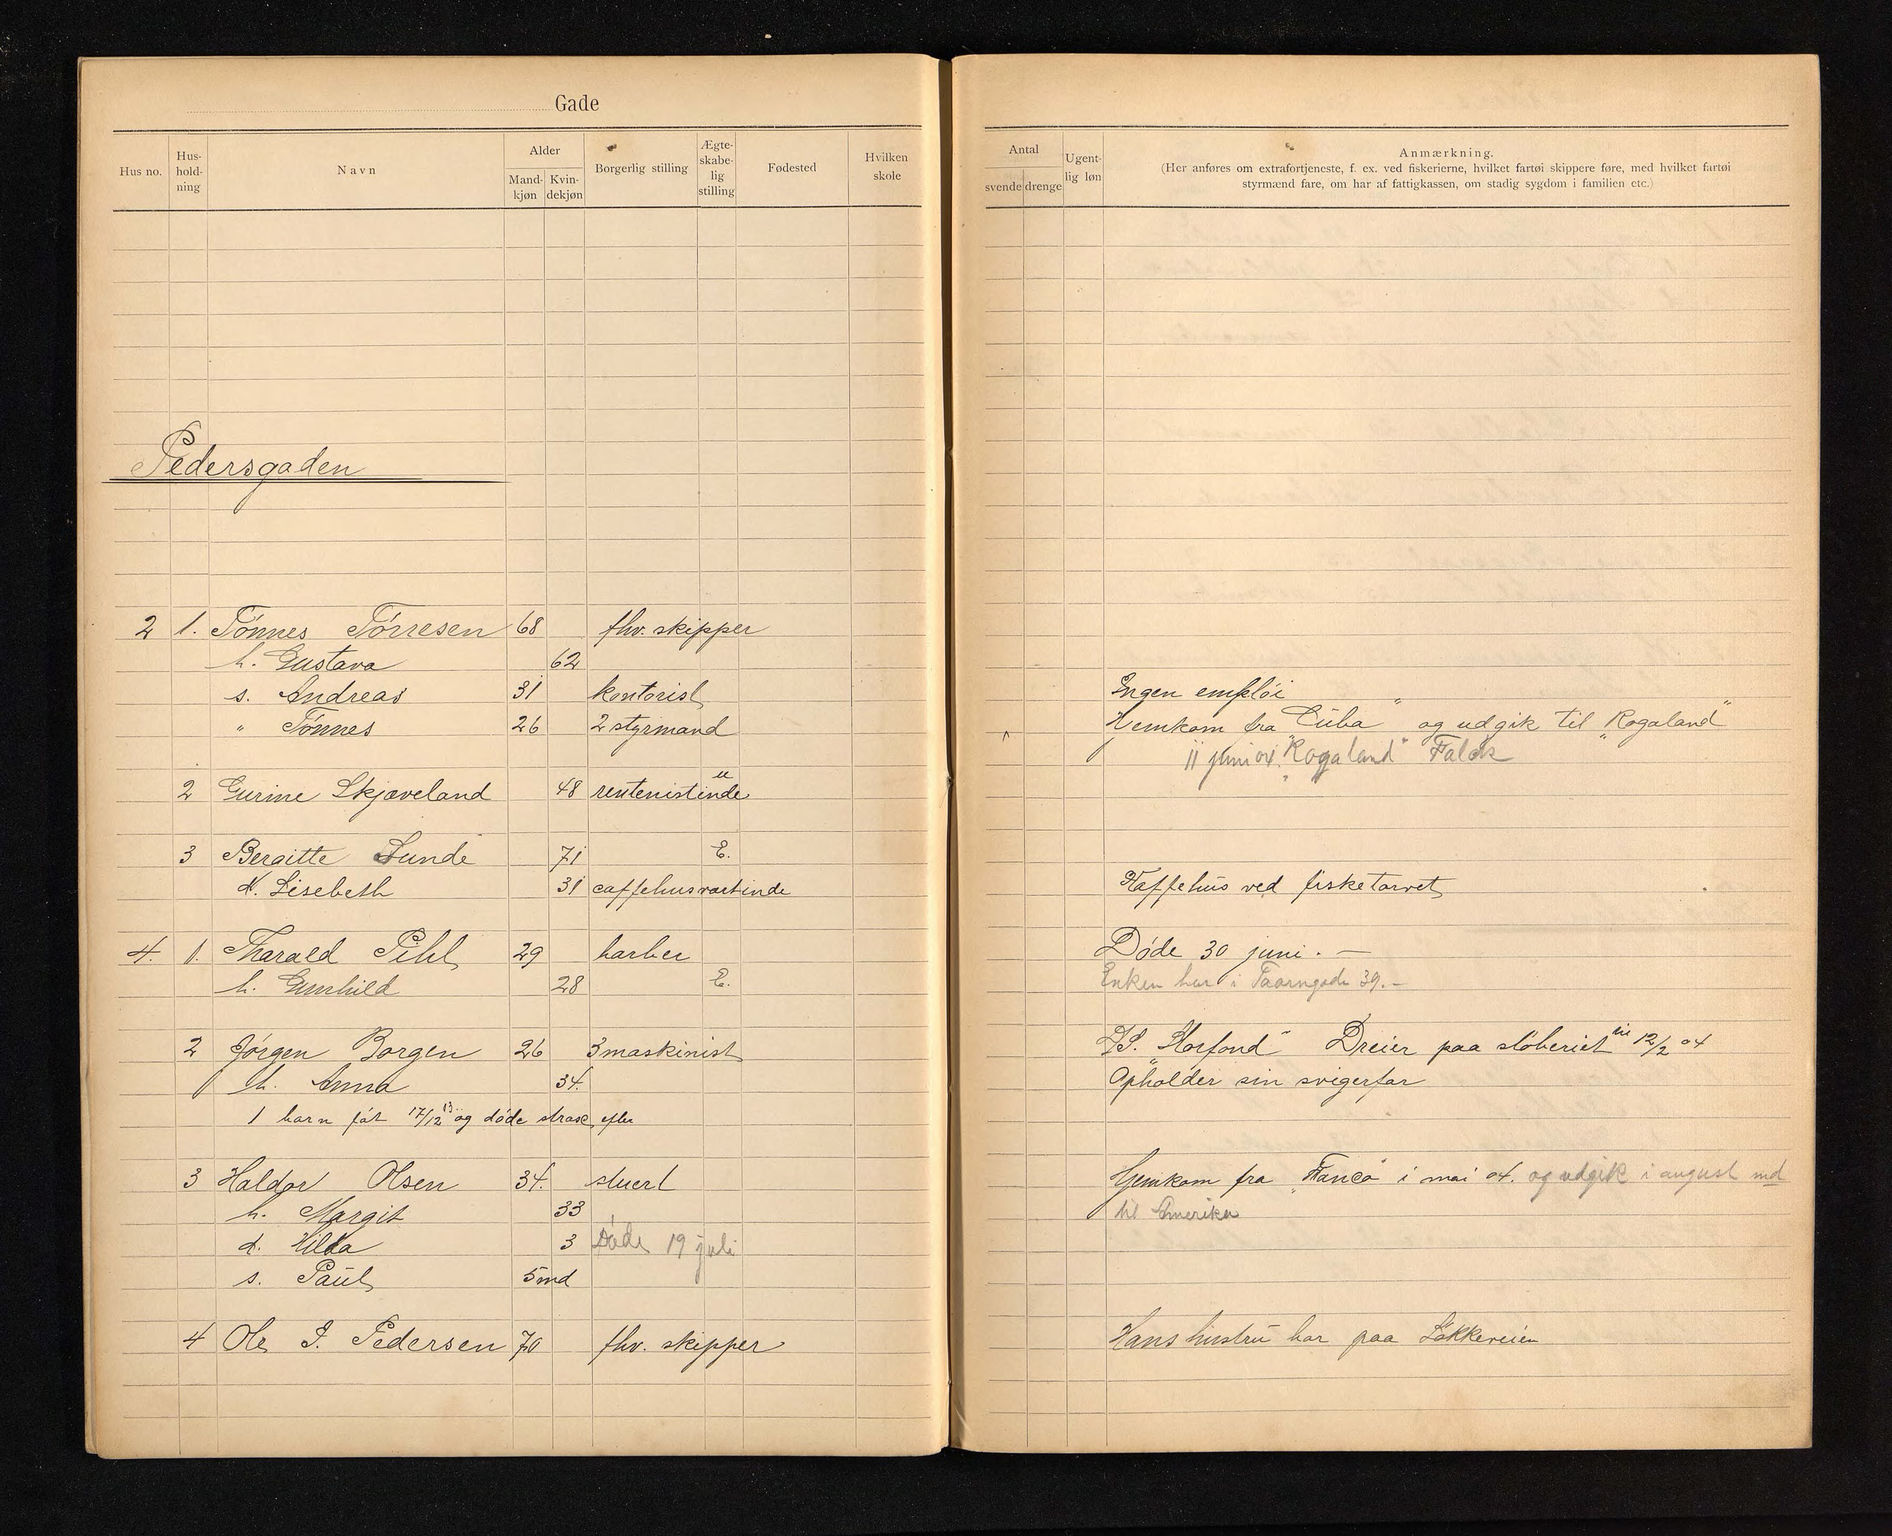 Gade
Hus no. Hus-hold-ning Navn Alder Mand-kjøn Kvin-dekjøn Borgerlig stilling Ægte-skabe-lig stilling Fødested Hvilken skole
Pedersgaden
2 1. Tønnes Tørresen 68 fhv. skipper
h. Gustava 62
s. Andreas 31 kontorist
" Tønnes 26 2 styrmand
2 Gurine Skjæveland 48 rentenistinde u
3 Bergitte Lunde 71 E.
d. Lisebeth 31 caffehusværtinde
4. 1. Tharald Pihl 29 barber
h. Gunhild 28 E.
2 Jørgen Borgen 26 3 maskinist
h. Anna 34.
1 barn føt 17/12 13 og døde strax efter
3 Haldor Olsen 34. stuert
h. Margit 33
d. Hilda 3 Døde 19 juli
s. Paul 5 md
4 Ole I. Pedersen 70 fhv. skipper
Antal svende drenge Ugent-lig løn Anmærkning.
(Her anføres om extrafortjeneste, f. ex. ved fiskerierne, hvilket fartøi skippere føre, med hvilket fartøi
styrmænd fare, om har af fattigkassen, om stadig sygdom i familien etc.)
Ingen empløi
Hemkom fra "Cuba" og udgik til "Rogaland"
11 juni 04. "Rogaland" Falck
Kaffehus ved fisketorvet
Døde 30 juni. —
Enken bor i Taarngade 39. —
D/S. "Horfond" Dreier paa støberiet til 12/2 04
Opholder sin svigerfar
Hjemkom fra "Fanco" i mai 04. og udgik i august md
til Amerika
Hans hustru bor paa Løkkeveien